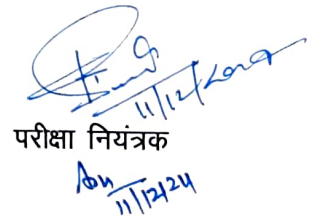 11/12/2024
परीक्षा नियंत्रक
11/12/24